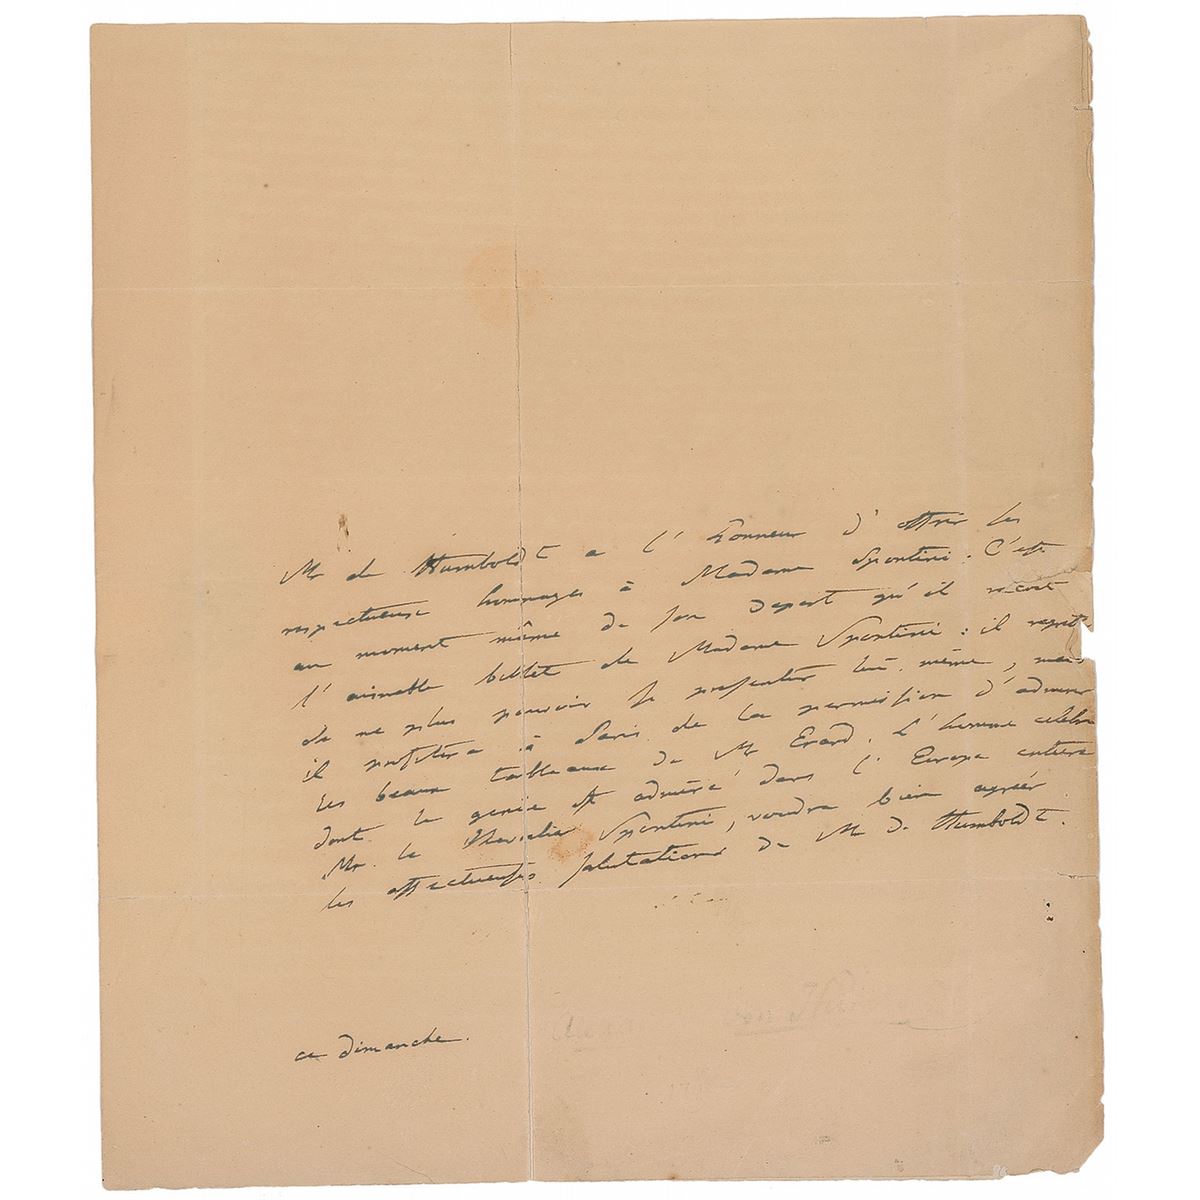 Mr de Humboldt a l'honneur d'offrir les
respectueux hommages à Madame Spontini. C'est
au moment même de son depart qu'il recoit
l'aimable billet de Madame Spontini: il regrette
de ne plus pouvoir se presenter lui-même, mais
il profitera à Paris de la permission d'admirer
les beaux tableaux de Mr Erard. L'homme celebre
dont le genie est admiré dans l'Europe entiere
Mr. le Chevalier Spontini, voudra bien agréer
les affectueuses salutations de Mr de Humboldt.
ce dimanche.
von